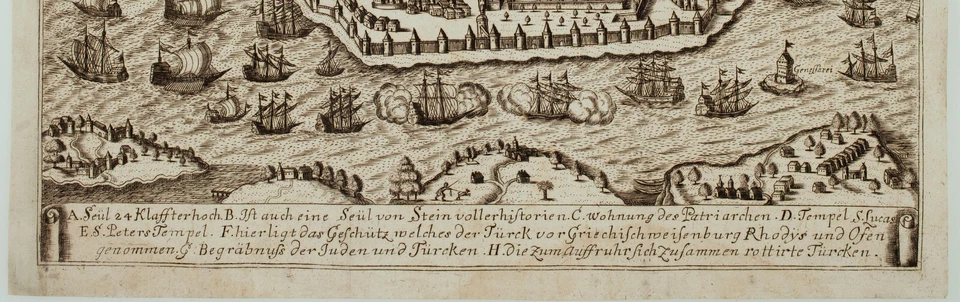 Genesserei
A. Seül 24 Klaffterhoch. B. Ist auch eine Seül von Stein vollerhistorien. C. wohnung des Patriarchen. D. Tempel S. Lucas
E. S. Peters Tempel. F. hierligt das Geschütz welches der Türck vor Griechischweisenburg Rhodys und Ofen
genommen. G. Begräbnuß der Juden und Türcken. H. Die zum Auffruhr sich zusammen rottirte Türcken.